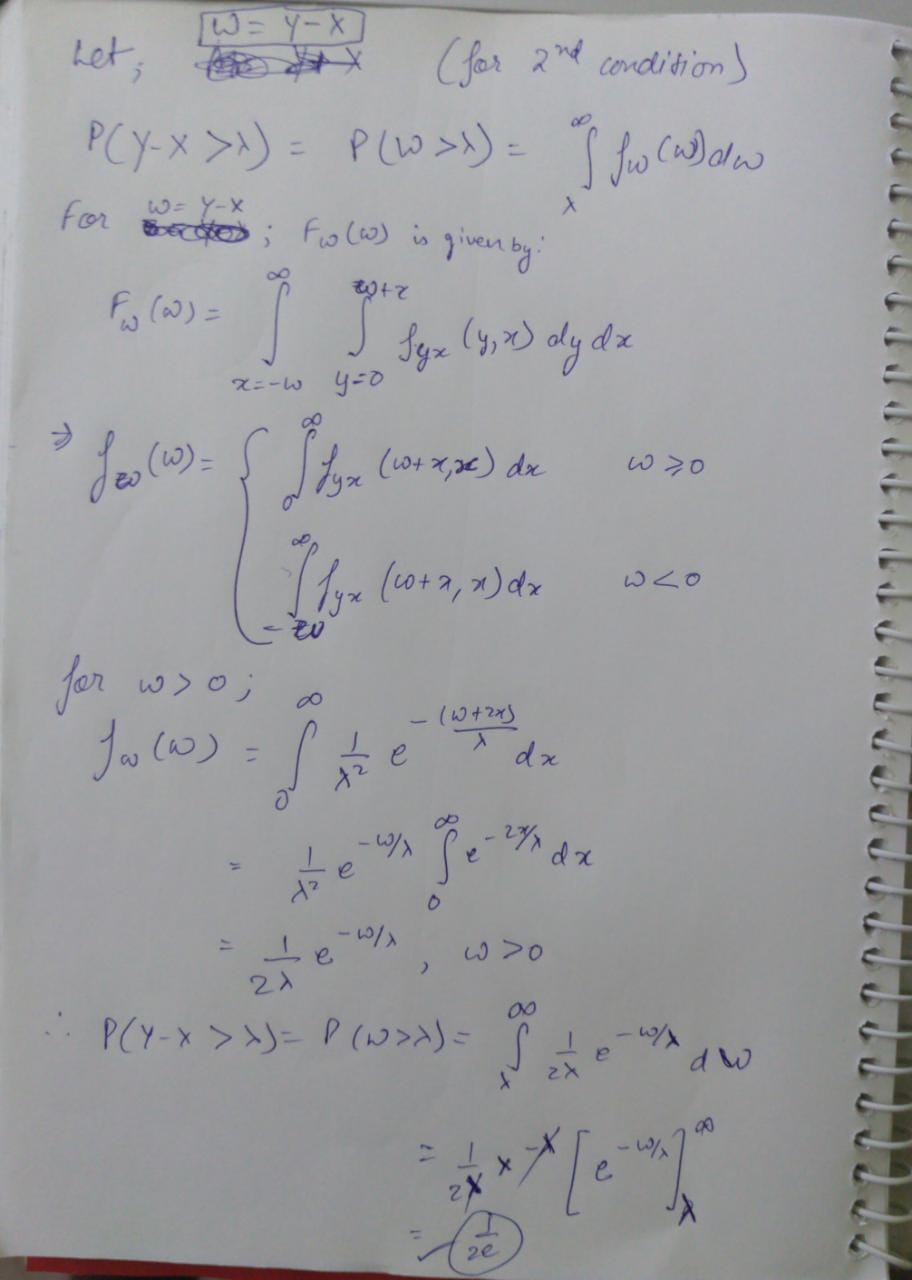 Let; W = Y - X (for 2nd condition)
P(Y-X > λ) = P(W > λ) = ∫_λ^∞ f_W(w) dw
For W = Y - X ; F_W(w) is given by:
F_W(w) = ∫_{x=-w}^∞ ∫_{y=0}^{w+x} f_{yx}(y,x) dy dx
⇒ f_W(w) = { ∫_0^∞ f_{yx}(w+x,x) dx w ≥ 0
∫_{-w}^∞ f_{yx}(w+x,x) dx w < 0
for w > 0 ;
f_W(w) = ∫_0^∞ 1/λ² e^{-(w+2x)/λ} dx
= 1/λ² e^{-w/λ} ∫_0^∞ e^{-2x/λ} dx
= 1/2λ e^{-w/λ} , w > 0
∴ P(Y-X > λ) = P(W > λ) = ∫_λ^∞ 1/2λ e^{-w/λ} dw
= 1/2λ × -λ [e^{-w/λ}]_λ^∞
= 1/2e